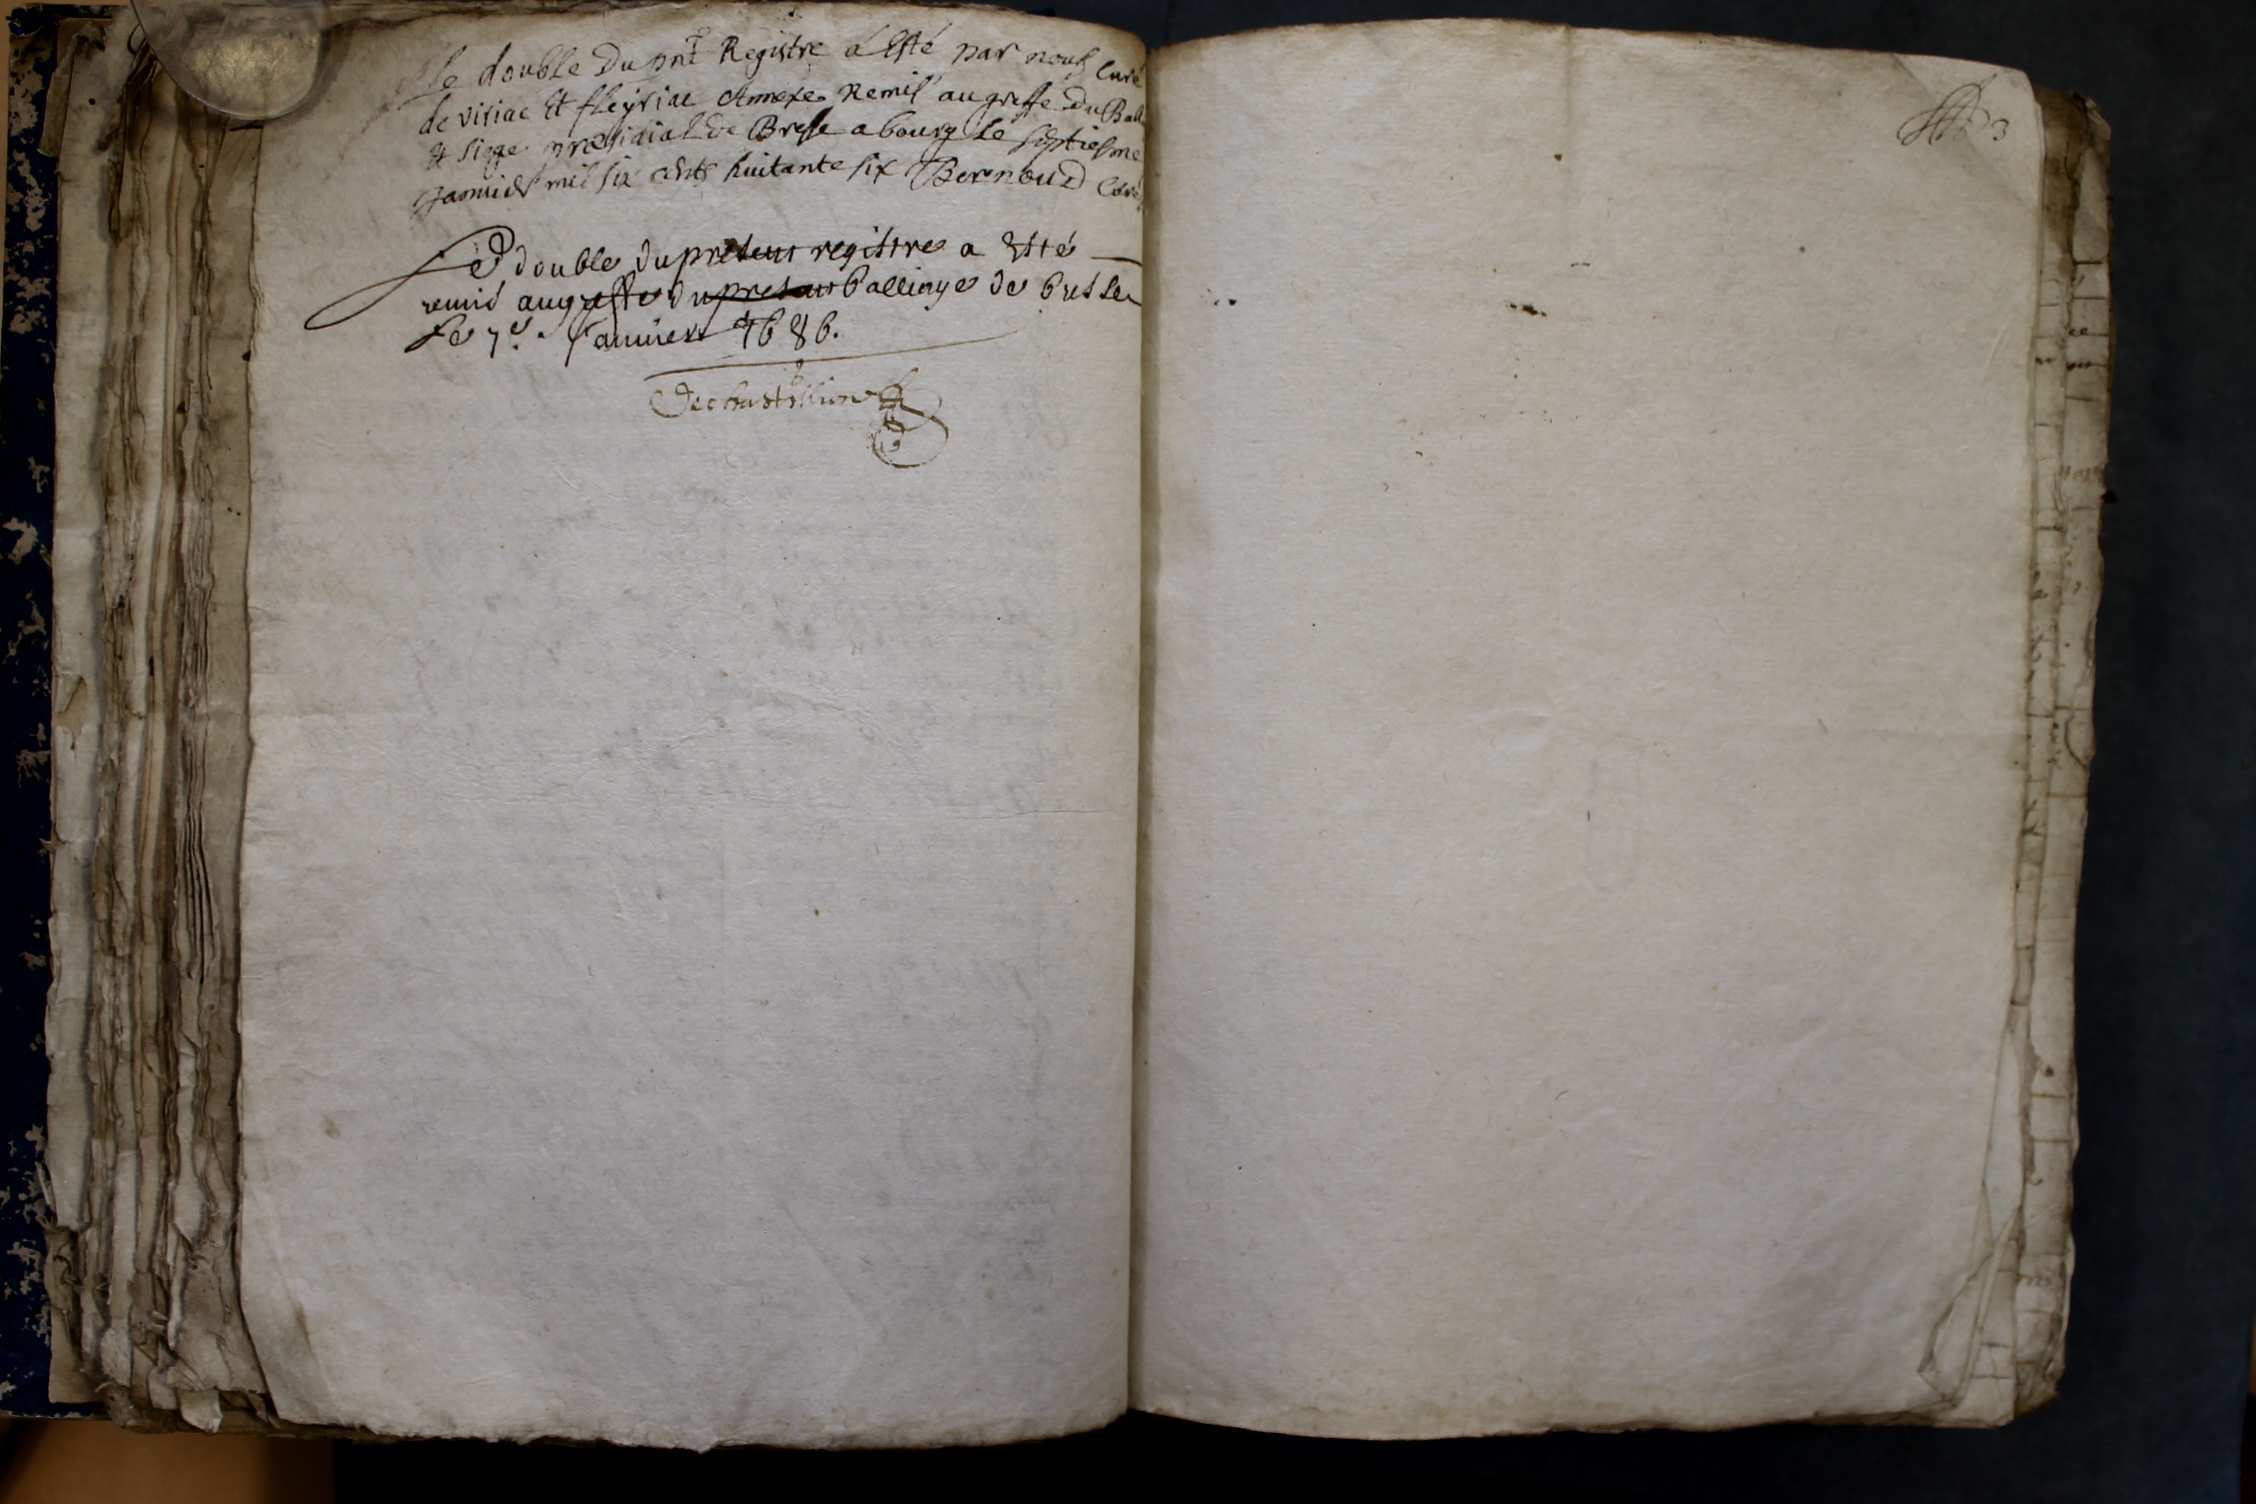 Le double du pnt Registre a Esté par nous Curé
de viriac Et fleyriac Annexe Remis au greffe Du Ball
& siege præsidial de Bresse a bourg Le septiesme
Janvier mil six cents huitante six Bernoud Curé
Le double du present registre a Esté
remis au greffe du balliage de bresse
Le 7e. Janvier 1686.
Dechastillion